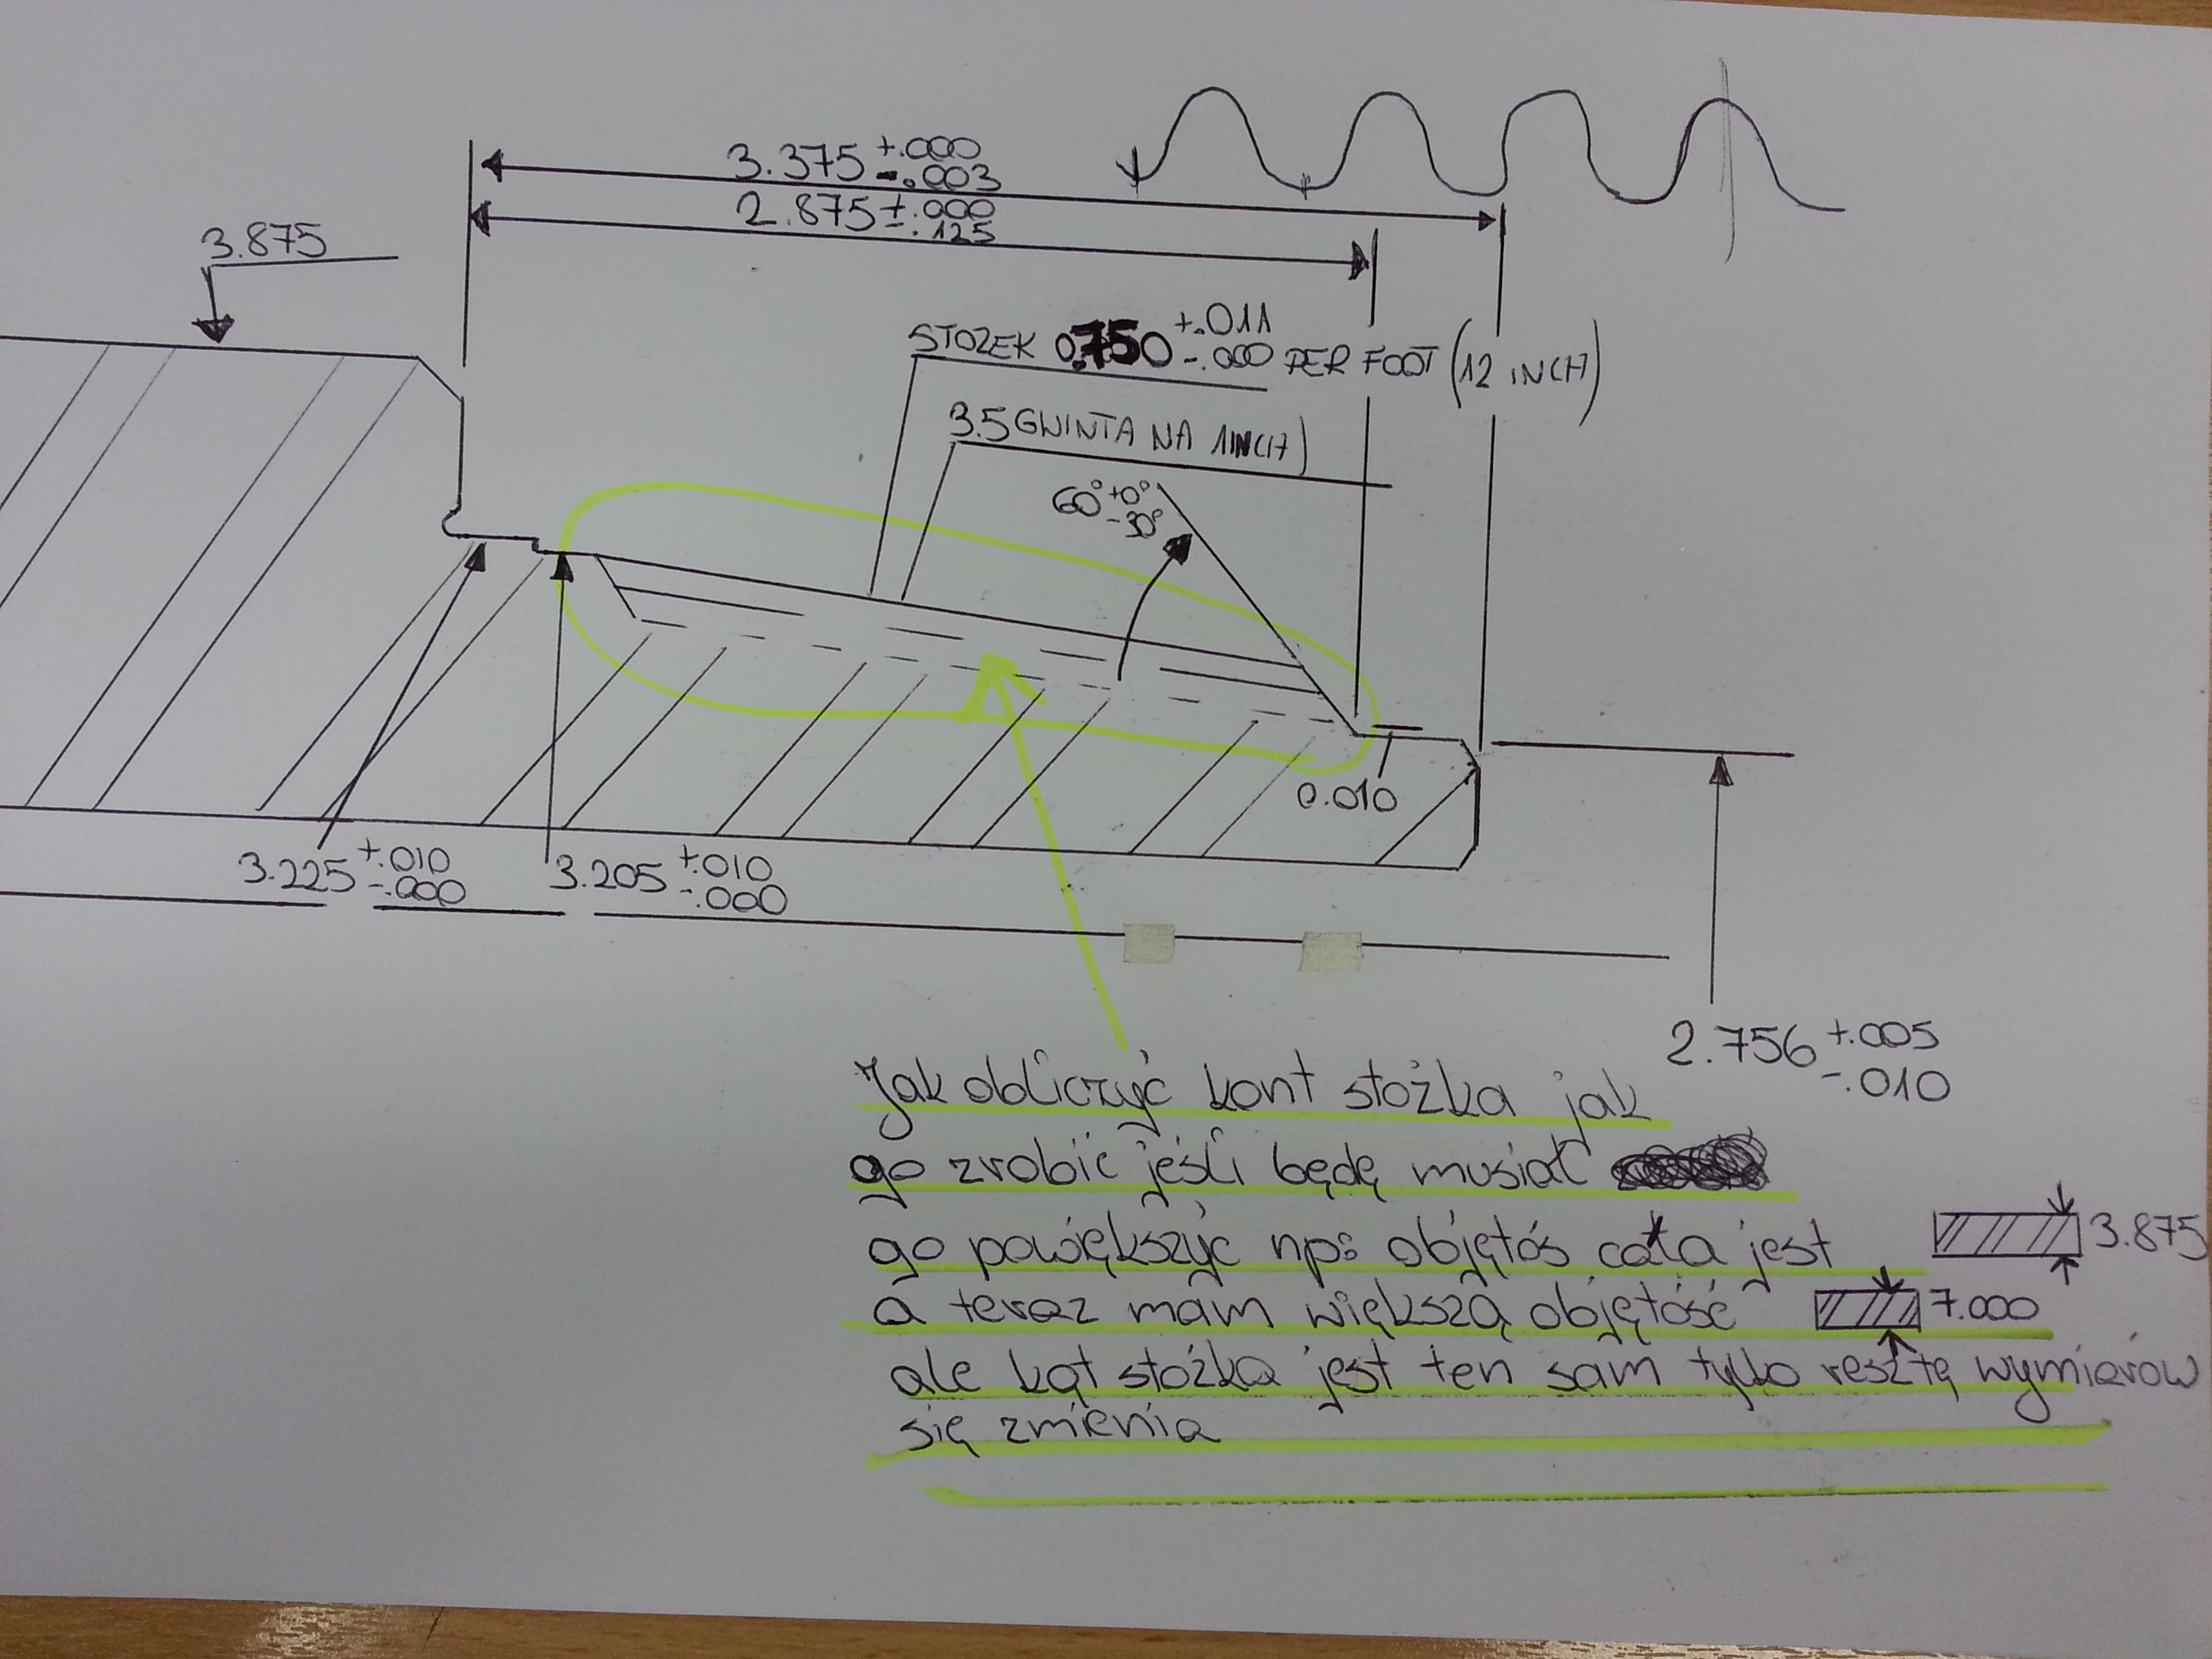 3.375 +.000 -.003
2.875 +.000 -.125
3.875
STOZEK 0.750 +.011 -.000 PER FOOT (12 INCH)
3.5 GWINTA NA 1INCH)
60° +0° -30°
0.010
3.225 +.010 -.000
3.205 +.010 -.000
2.756 +.005 -.010
Jak obliczyć kont stożka jak
go zrobić jeśli będę musiał
go powiększyć np: objętóś cała jest 3.875
a teraz mam większą objętość 7.000
ale kąt stożka jest ten sam tylko resztę wymiarów
się zmienia